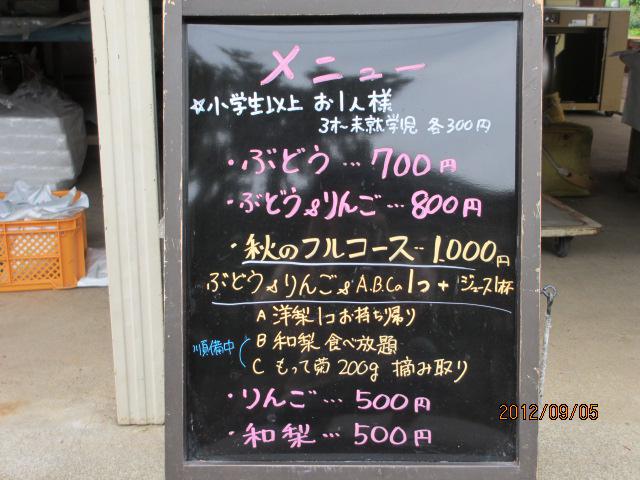 メニュー
☆小学生以上 お1人様
3才〜未就学児 各300円
・ぶどう…700円
・ぶどう&りんご…800円
・秋のフルコース…1,000円
ぶどう&りんご&A.B.Cの1つ+ジュース1杯
A 洋梨1コお持ち帰り
順備中
B 和梨 食べ放題
C もって菊 200g 摘み取り
・りんご…500円
・和梨…500円
2012/09/05